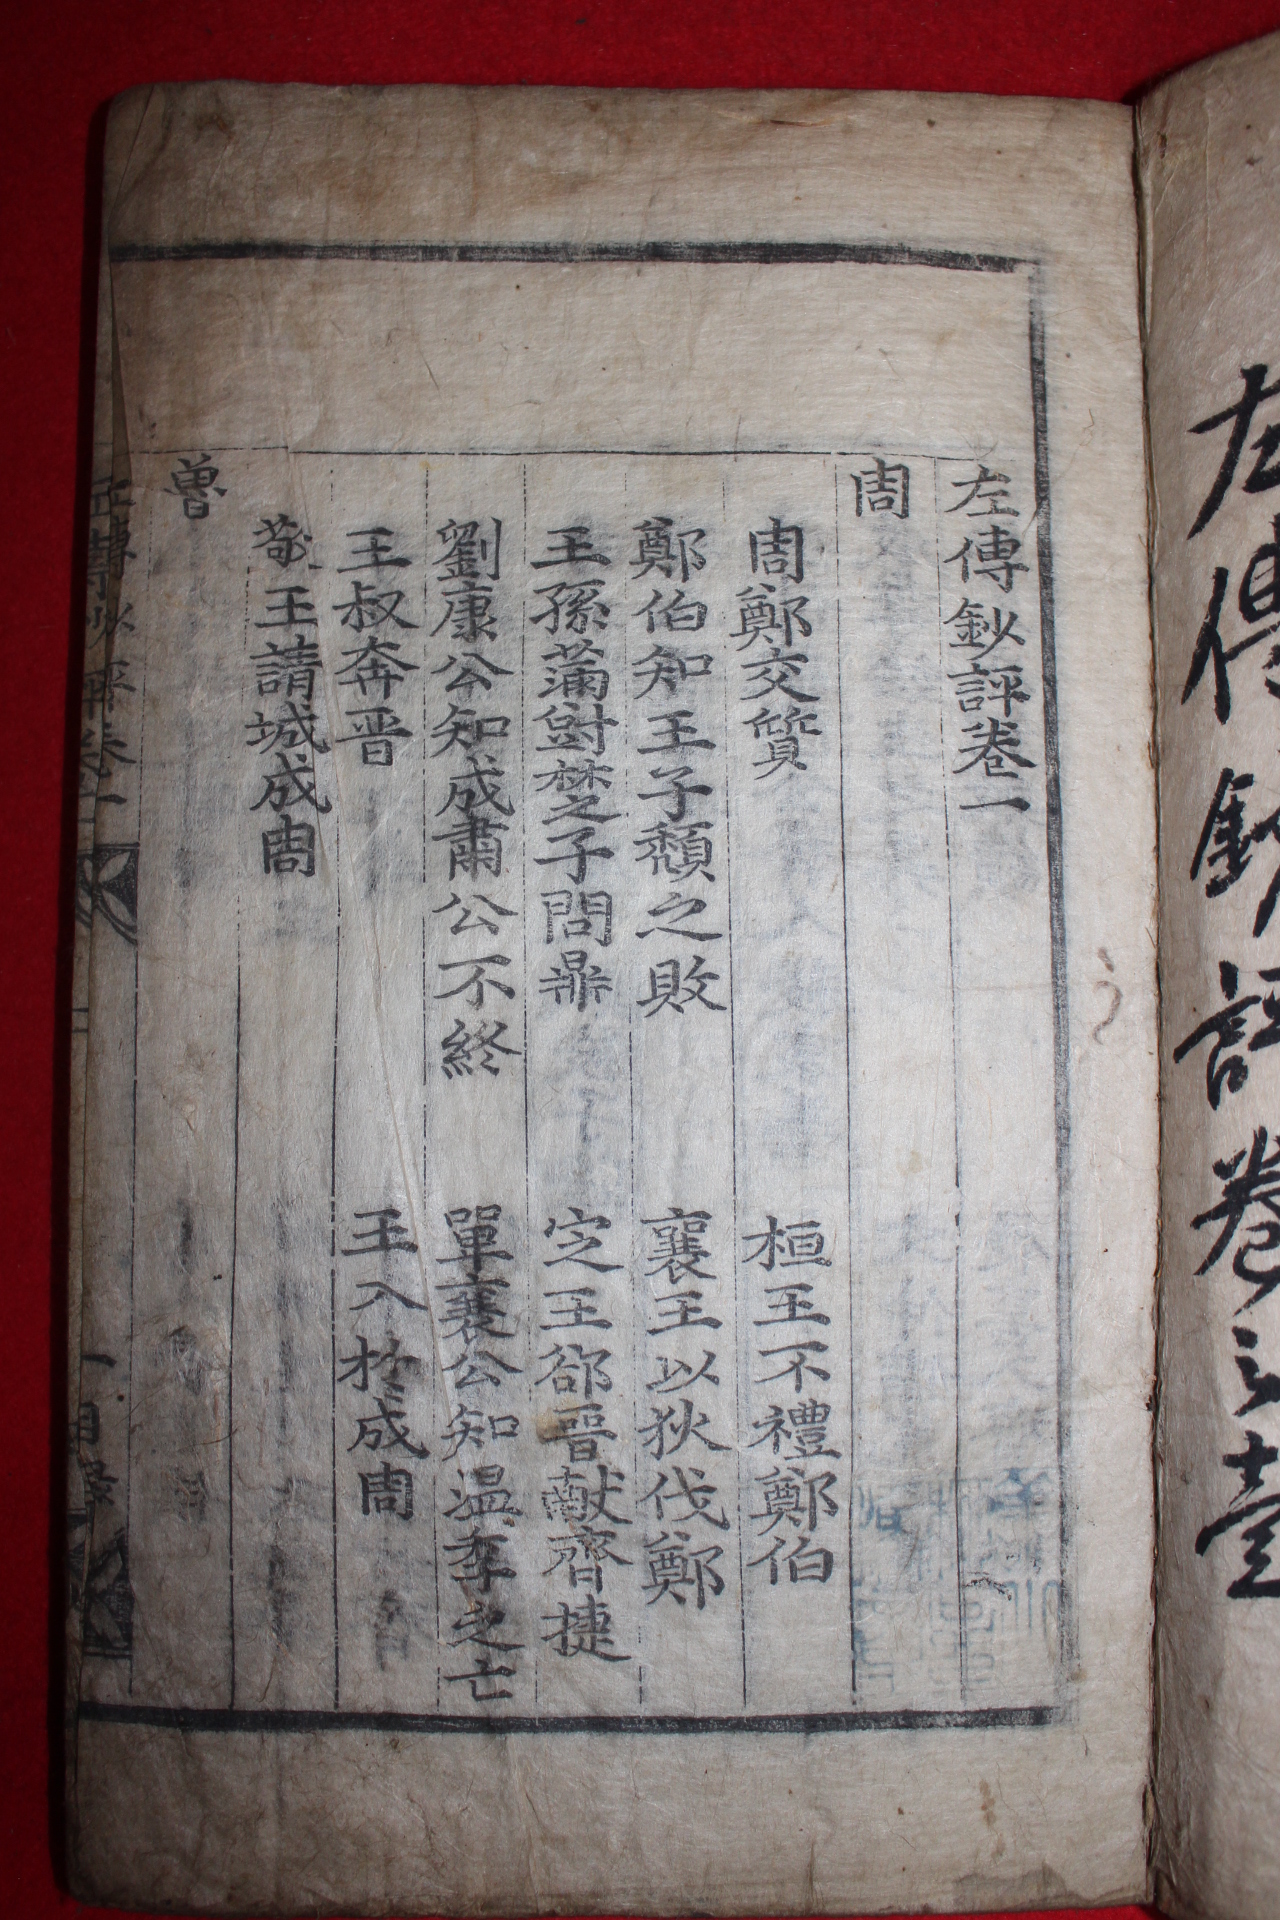 左傳鈔評卷之壹
左傳鈔評卷一
周
周鄭交質　桓王不禮鄭伯
鄭伯知王子頹之敗　襄王以狄伐鄭
王孫滿對楚子問鼎　定王郤晉獻齊捷
劉康公知成肅公不終　單襄公知溫季之亡
王叔奔晉　王入於成周
敬王請城成周
魯
左傳鈔評卷一　一